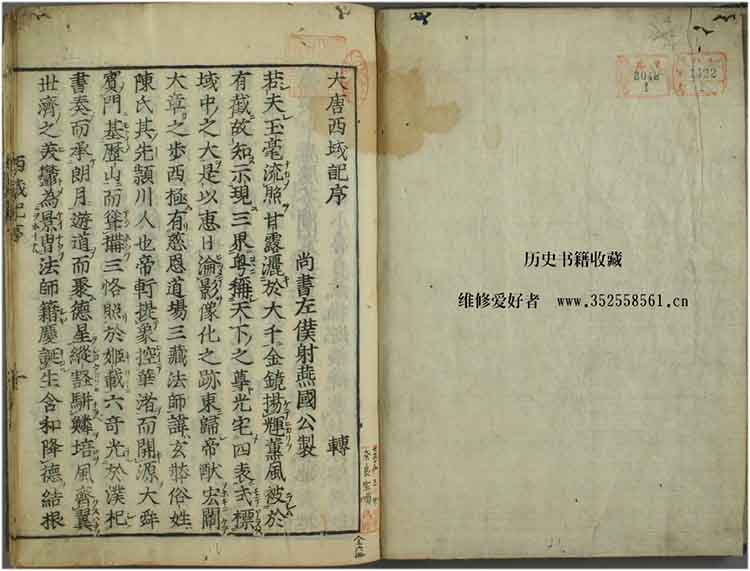 大唐西域記序 轉
尚書左僕射燕國公製
若夫玉毫流照甘露灑於大千金鏡揚輝薰風被於
有截故知示現三界粤稱天下之尊光宅四表式標
域中之大是以惠日淪影像化之跡東歸帝猷宏闡
大章之步西極有慈恩道場三藏法師諱玄奘俗姓
陳氏其先頴川人也帝軒提象控華渚而開源大舜
賓門基歷山而聳搆三恪照於姬載六奇光於漢祀
書奏而承朗月遊道而聚德星縱壑駢鱗培風齊翼
世濟之美鬱為景胄法師籍慶誕生含和降德結根
西域記序
3046
1
1522
历史书籍收藏
维修爱好者 www.352558561.cn